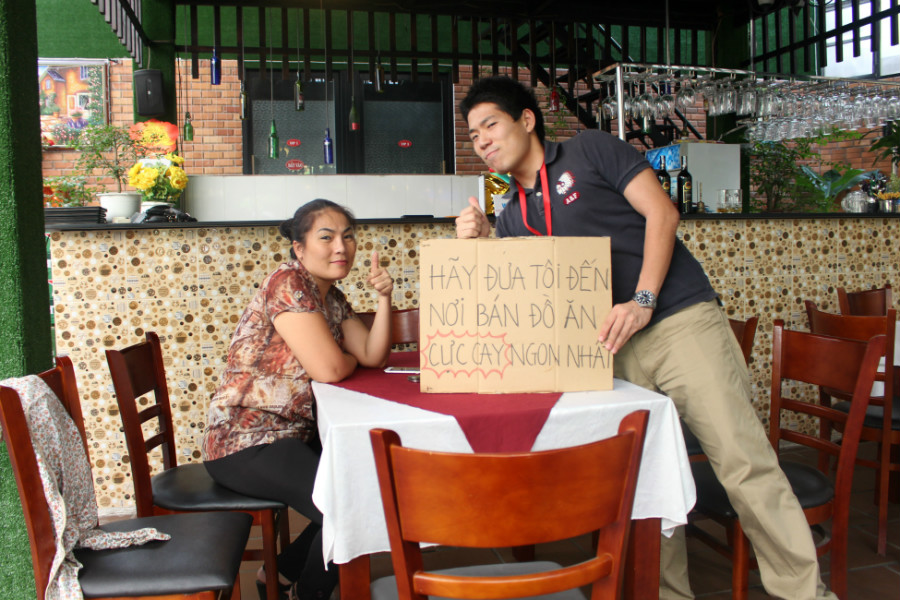 HÃY ĐƯA TÔI ĐẾN
NƠI BÁN ĐỒ ĂN
CỰC CAY NGON NHẤT